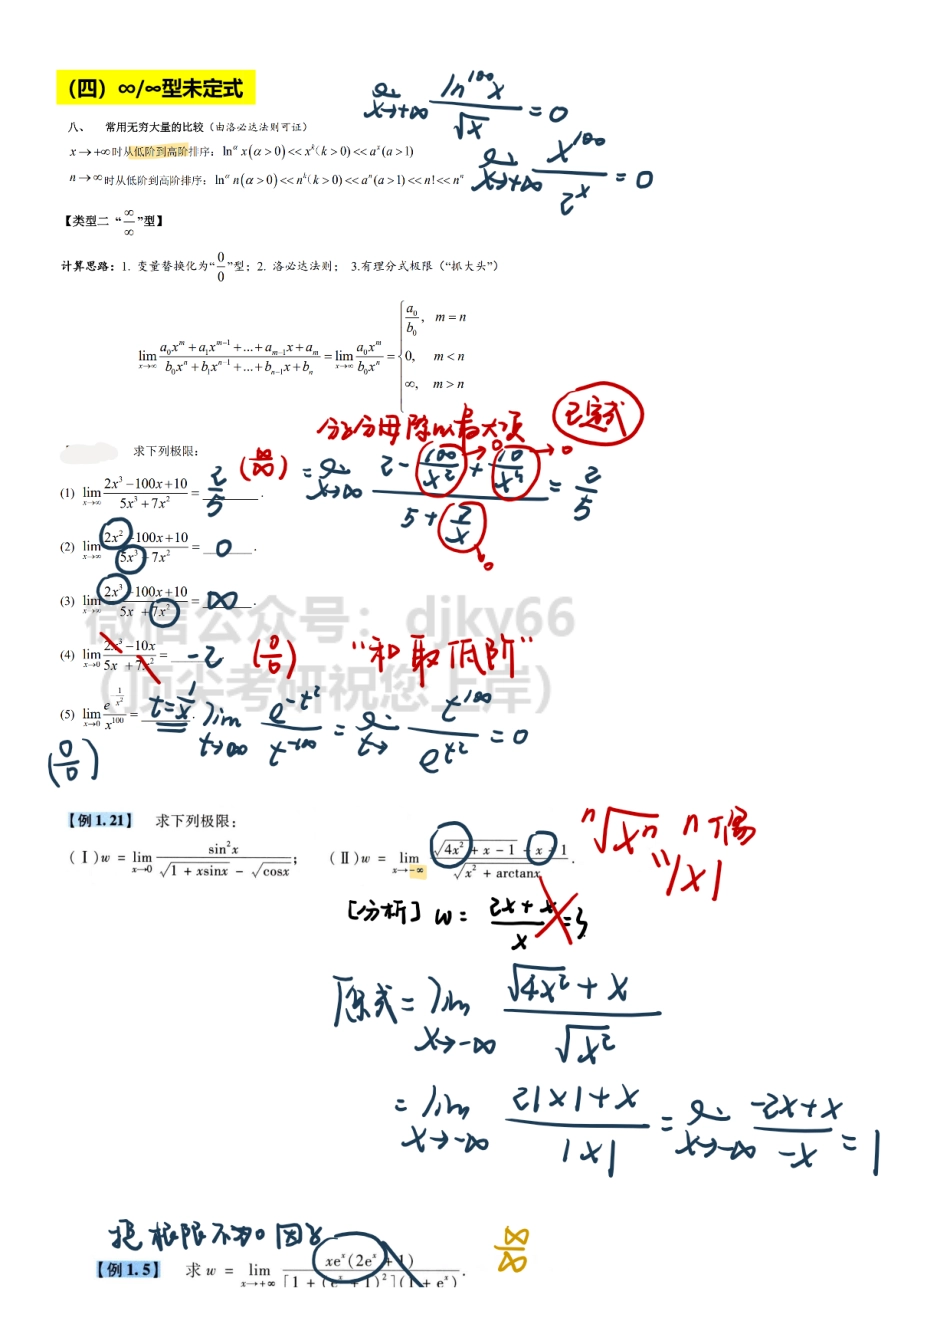 （四）∞/∞型未定式
lim x→+∞ ln^100 x / √x = 0
八、 常用无穷大量的比较（由洛必达法则可证）
x→+∞时从低阶到高阶排序：ln^α x(α>0)<<x^k(k>0)<<a^x(a>1)
lim x→+∞ x^100 / 2^x = 0
n→∞时从低阶到高阶排序：ln^α n(α>0)<<n^k(k>0)<<a^n(a>1)<<n!<<n^n
【类型二 “∞/∞”型】
计算思路：1. 变量替换化为“0/0”型；2. 洛必达法则； 3.有理分式极限（“抓大头”）
lim x→∞ (a₀x^m+a₁x^(m-1)+...+a_(m-1)x+a_m)/(b₀x^n+b₁x^(n-1)+...+b_(n-1)x+b_n) = lim x→∞ a₀x^m/b₀x^n = { a₀/b₀, m=n
0, m<n
∞, m>n
分子分母除以最大项 已定式
求下列极限：
(1) lim x→∞ (2x³−100x+10)/(5x³+7x²) = 2/5 . (∞/∞) = lim x→∞ (2−100/x²+10/x³)/(5+7/x) = 2/5
→0 →0 →0
(2) lim x→∞ (2x²−100x+10)/(5x³+7x²) = 0 .
(3) lim x→∞ (2x³−100x+10)/(5x+7x²) = ∞ .
微信公众号：djky66
(4) lim x→0 (2x³−10x)/(5x+7x²) = -2 (0/0) “和取低阶”
（顶尖考研祝您上岸）
(5) lim x→0 e^(−1/x²)/x^100 = . t=1/x lim t→∞ e^(-t²)/t^(-100) = lim t→ t^100/e^(t²) = 0
(0/0)
【例1.21】 求下列极限：
ⁿ√xⁿ n偶
(Ⅰ)w = lim x→0 sin²x/(√(1+xsinx) − √cosx)； (Ⅱ)w = lim x→−∞ (√(4x²+x−1)+x+1)/√(x²+arctanx).
|x|
[分析] w= (2x+x)/x =3
原式= lim x→-∞ (√4x²+x)/√x²
= lim x→-∞ (2|x|+x)/|x| = lim x→-∞ (-2x+x)/-x = 1
提极限不为0因子
∞/∞
【例1.5】 求 w = lim x→+∞ xe^x(2e^x+1)/[1+(e^x+1)²](1+e^x).